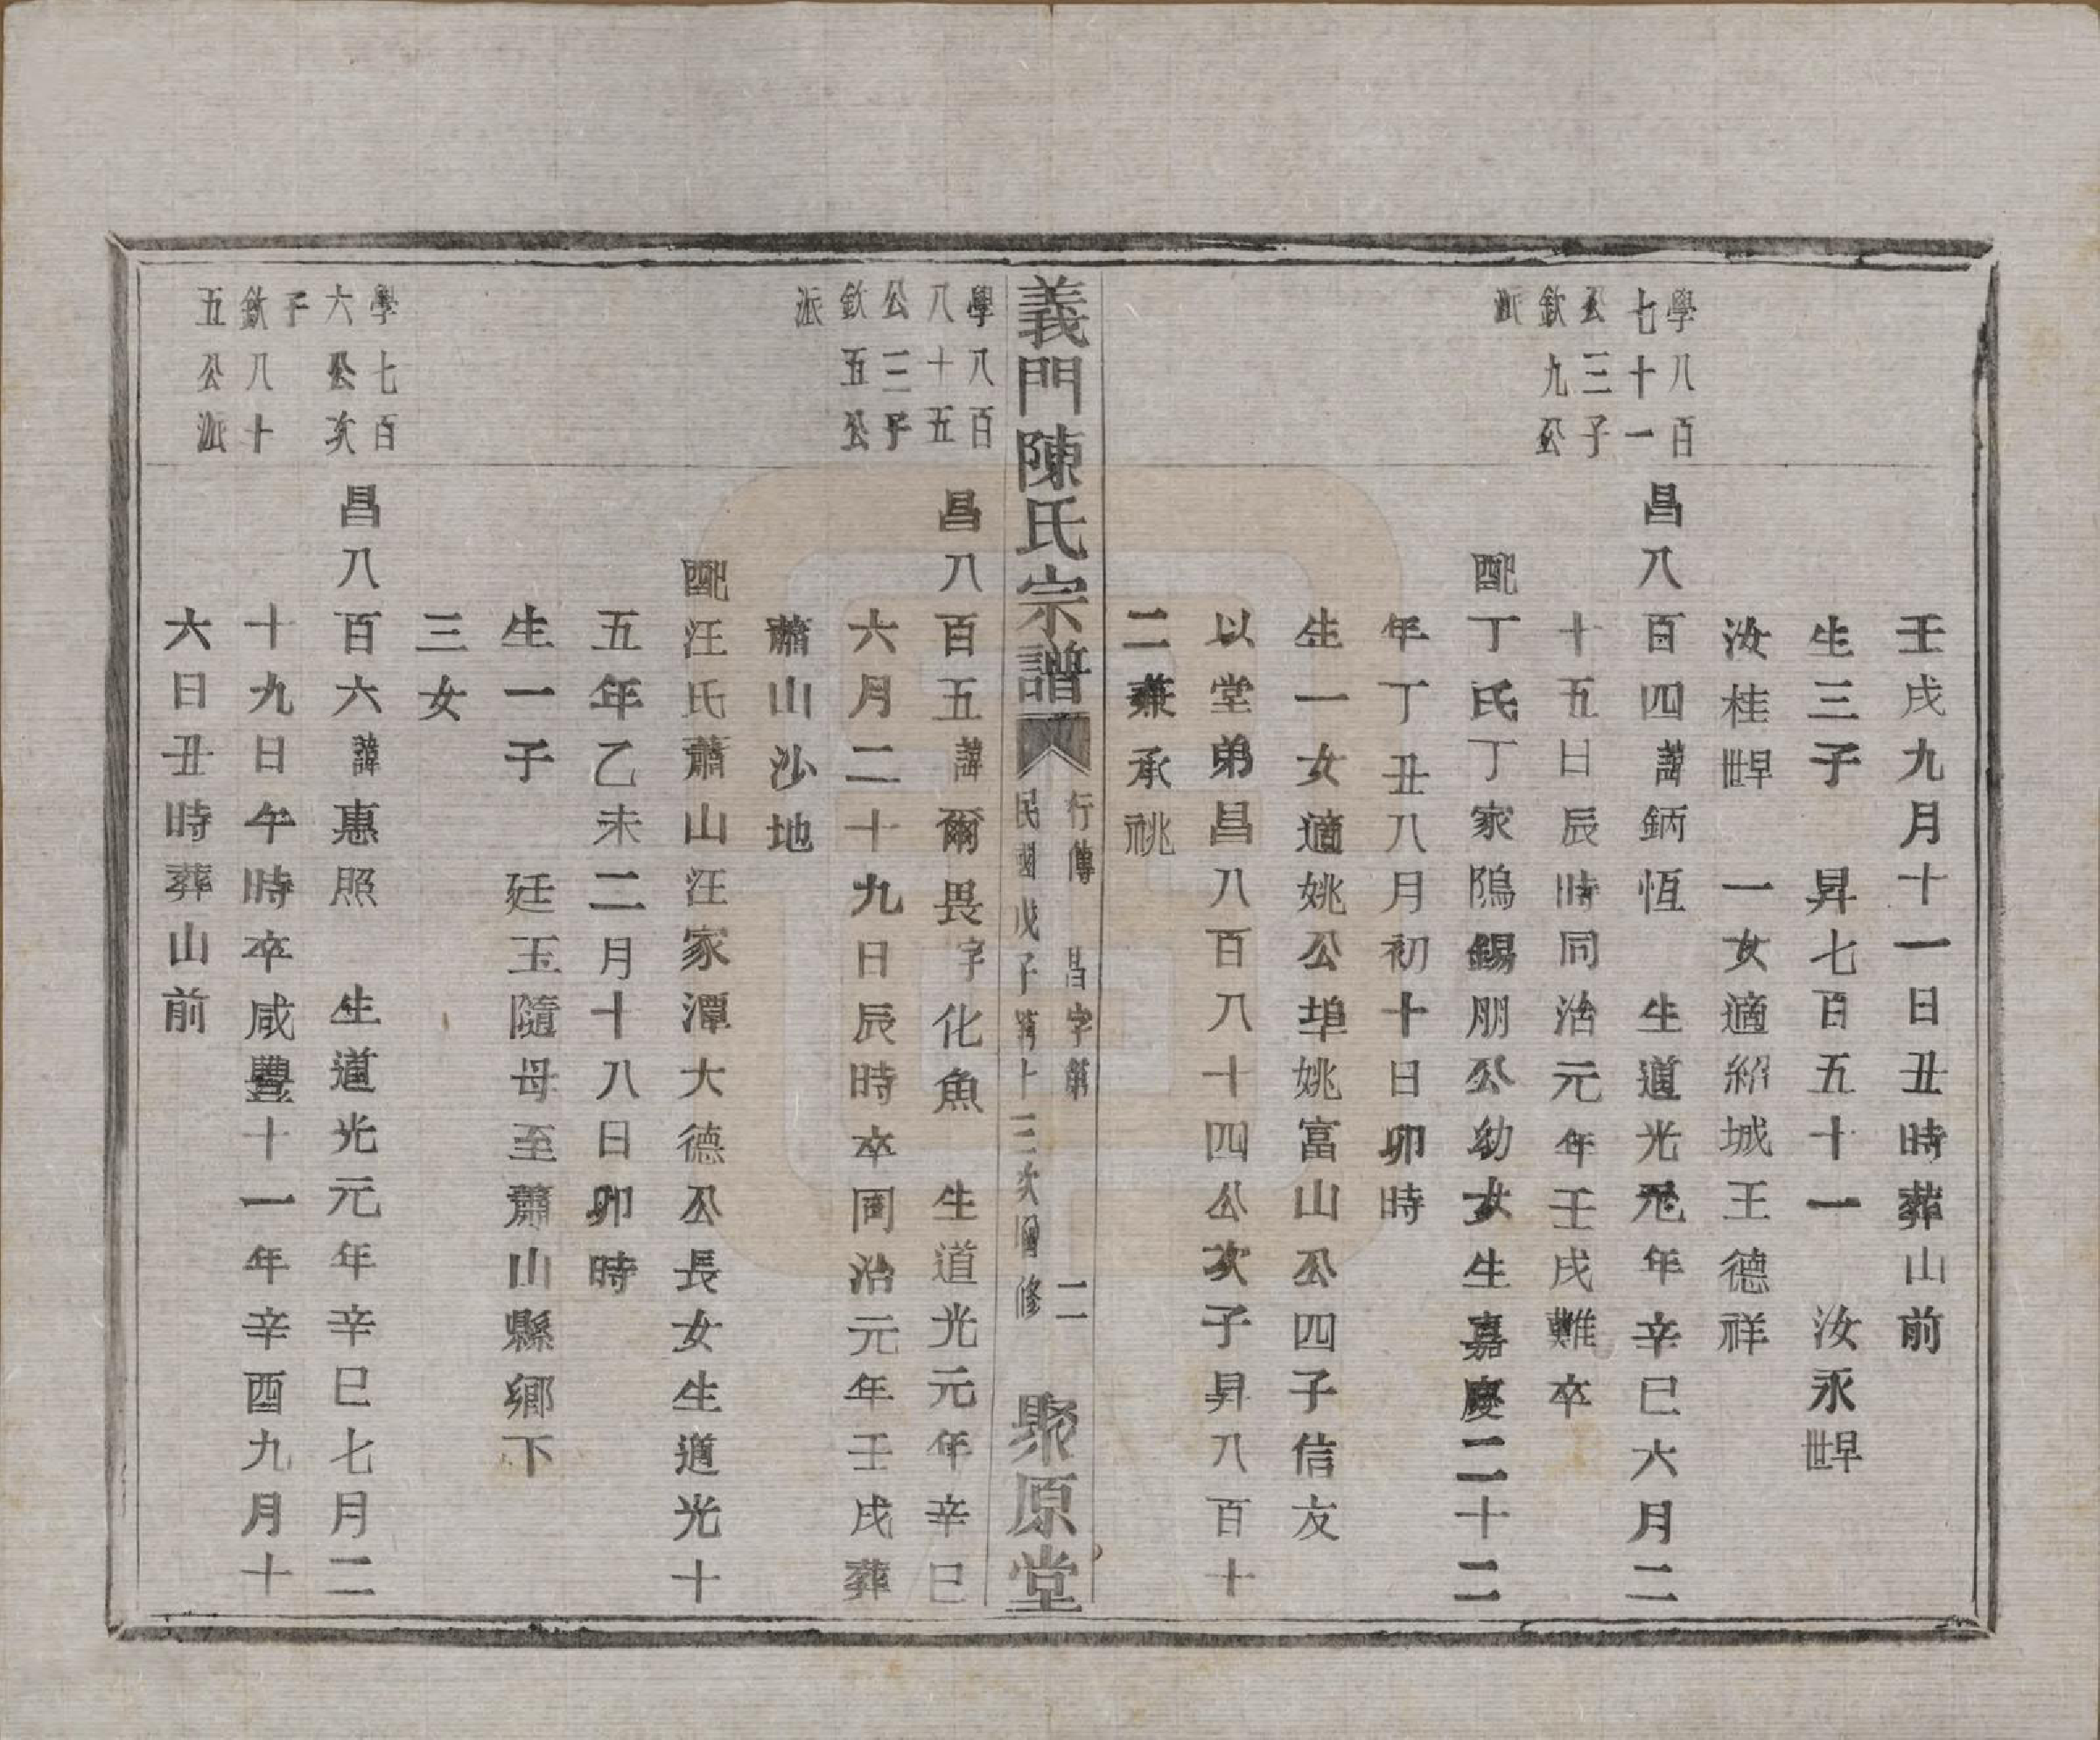 壬戌九月十一日丑時葬山前
生三子　昇七百五十一　汝永世早
汝桂世早　一女適紹城王德祥
學八百
七十一
公三子
欽九公
派
昌八百四諱鈵恆　生道光元年辛巳六月二
十五日辰時同治元年壬戌難卒
配丁氏丁家隝錫朋公幼女生嘉慶二十二
年丁丑八月初十日卯時
生一女適姚公埠姚富山公四子信友
以堂弟昌八百八十四公次子昇八百十
二兼承祧
義門陳氏宗譜
行傳　昌字號　二
民國戊子第十三次增修
聚原堂
學八百
八十五
公三子
欽五公
派
昌八百五諱爾畏字化魚　生道光元年辛巳
六月二十九日辰時卒同治元年壬戌葬
蕭山沙地
配汪氏蕭山汪家潭大德公長女生道光十
五年乙未二月十八日卯時
生一子　廷玉隨母至蕭山縣鄉下
三女
學七百
六公次
子
欽八十
五公派
昌八百六諱惠照　生道光元年辛巳七月二
十九日午時卒咸豐十一年辛酉九月十
六日丑時葬山前